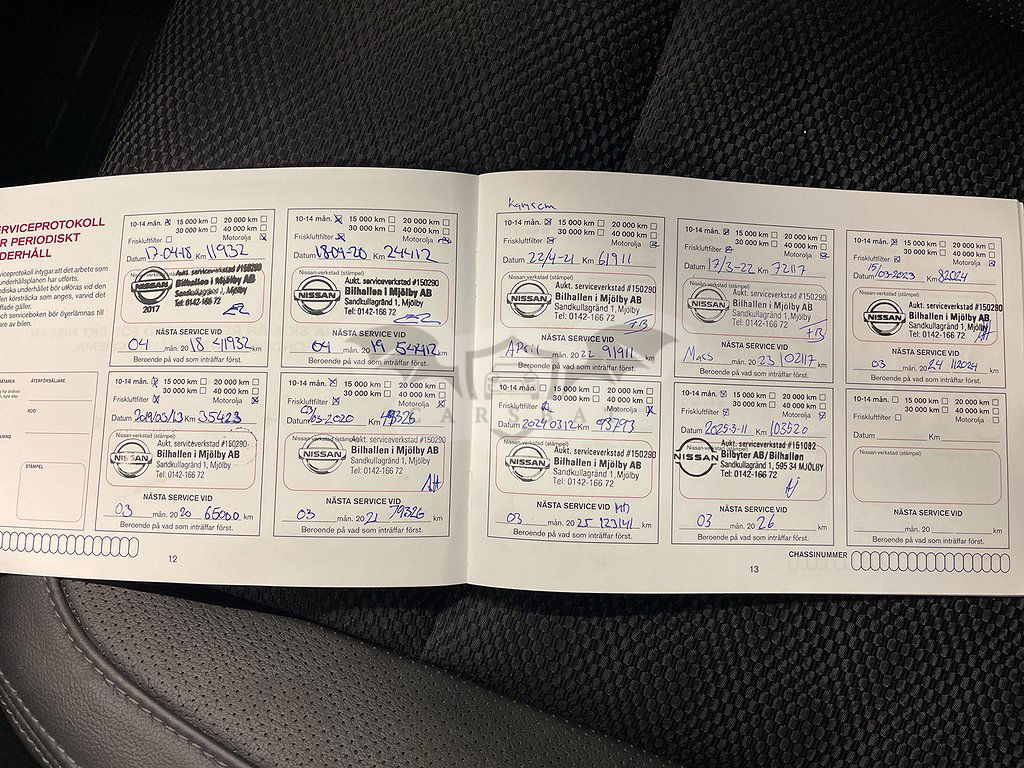 ERVICEPROTOKOLL
R PERIODISKT
DERHÅLL
viceprotokoll intygar att det arbete som
underhållsplanen har utförts.
odiska underhållet bör utföras vid den
len körsträcka som anges, varvid det
äffade gäller.
och serviceboken bör överlämnas till
are av bilen.
ÅTERFÖRSÄLJARE
KOD
STÄMPEL
10-14 mån. 15 000 km 20 000 km
30 000 km 40 000 km
Friskluftfilter Motorolja
Datum 17-04-18 Km 11932
Aukt. serviceverkstad #150290
Bilhallen i Mjölby AB
Sandkullagränd 1, Mjölby
Tel: 0142-166 72
NISSAN
2017
NÄSTA SERVICE VID
04 mån. 20 18 41932 km
Beroende på vad som inträffar först.
10-14 mån. 15 000 km 20 000 km
30 000 km 40 000 km
Friskluftfilter Motorolja
Datum 18-04-20 Km 24412
Nissan-verkstad (stämpel)
Aukt. serviceverkstad #150290
Bilhallen i Mjölby AB
Sandkullagränd 1, Mjölby
Tel: 0142-166 72
NISSAN
NÄSTA SERVICE VID
04 mån. 20 19 54412 km
Beroende på vad som inträffar först.
10-14 mån. 15 000 km 20 000 km
30 000 km 40 000 km
Friskluftfilter Motorolja
Datum 2019/03/13 Km 35423
Nissan-verkstad (stämpel)
Aukt. serviceverkstad #150290
Bilhallen i Mjölby AB
Sandkullagränd 1, Mjölby
Tel: 0142-166 72
NISSAN
NÄSTA SERVICE VID
03 mån. 20 20 65000 km
Beroende på vad som inträffar först.
10-14 mån. 15 000 km 20 000 km
30 000 km 40 000 km
Friskluftfilter Motorolja
Datum /03-2020 Km 49326
Nissan-verkstad (stämpel)
Aukt. serviceverkstad #150290
Bilhallen i Mjölby AB
Sandkullagränd 1, Mjölby
Tel: 0142-166 72
NISSAN
NÄSTA SERVICE VID
03 mån. 20 21 79326 km
Beroende på vad som inträffar först.
12
Kamrem
10-14 mån. 15 000 km 20 000 km
30 000 km 40 000 km
Friskluftfilter Motorolja
Datum 22/4-21 Km 61911
Nissan-verkstad (stämpel)
Aukt. serviceverkstad #150290
Bilhallen i Mjölby AB
Sandkullagränd 1, Mjölby
Tel: 0142-166 72
NISSAN
FB
NÄSTA SERVICE VID
April mån. 2022 91911 km
Beroende på vad som inträffar först.
10-14 mån. 15 000 km 20 000 km
30 000 km 40 000 km
Friskluftfilter Motorolja
Datum 17/3-22 Km 72117
Nissan-verkstad (stämpel)
Aukt. serviceverkstad #150290
Bilhallen i Mjölby AB
Sandkullagränd 1, Mjölby
Tel: 0142-166 72
NISSAN
FB
NÄSTA SERVICE VID
Mars mån. 20 23 102117 km
Beroende på vad som inträffar först.
10-14 mån. 15 000 km 20 000 km
30 000 km 40 000 km
Friskluftfilter Motorolja
Datum 15/03-2023 Km 82024
Nissan-verkstad (stämpel)
Aukt. serviceverkstad #150290
Bilhallen i Mjölby AB
Sandkullagränd 1, Mjölby
Tel: 0142-166 72
NISSAN
NÄSTA SERVICE VID
03 mån. 20 24 112024 km
Beroende på vad som inträffar först.
10-14 mån. 15 000 km 20 000 km
30 000 km 40 000 km
Friskluftfilter Motorolja
Datum 20240312 Km 93793
Nissan-verkstad (stämpel)
Aukt. serviceverkstad #150290
Bilhallen i Mjölby AB
Sandkullagränd 1, Mjölby
Tel: 0142-166 72
NISSAN
NÄSTA SERVICE VID
03 mån. 20 25 123141 km
Beroende på vad som inträffar först.
10-14 mån. 15 000 km 20 000 km
30 000 km 40 000 km
Friskluftfilter Motorolja
Datum 2025-3-11 Km 103520
Nissan-verkstad (stämpel)
Aukt. serviceverkstad #151092
Bilbyter AB/Bilhallen
Sandkullagränd 1, 595 34 MJÖLBY
Tel: 0142-166 72
NISSAN
NÄSTA SERVICE VID
03 mån. 20 26 km
Beroende på vad som inträffar först.
10-14 mån. 15 000 km 20 000 km
30 000 km 40 000 km
Friskluftfilter Motorolja
Datum Km
Nissan-verkstad (stämpel)
NÄSTA SERVICE VID
mån. 20 km
Beroende på vad som inträffar först.
CHASSINUMMER
13